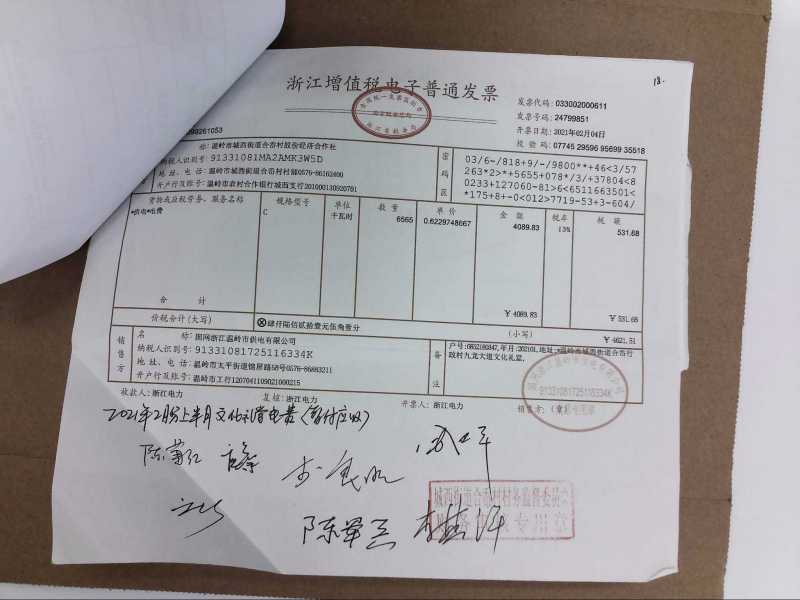 13.
浙江增值税电子普通发票
发票代码: 033002000611
发票号码: 24799851
开票日期: 2021年02月04日
校验码: 07745 29596 95699 35518
称: 温岭市城西街道合岙村股份经济合作社
纳税人识别号: 91331081MA2AMK3W5D
地址、电话: 温岭市城西街道合岙村村部0576-86162400
开户行及账号: 温岭市农村合作银行城西支行201000130920781
密码区
03/6-/818+9/-/9800**+46<3/57
263*2>*+5655+078*/3/+37804<8
0233+127060-81>6<6511663501<
*175+8+-0<012>7719-53+3-604/
货物或应税劳务、服务名称 规格型号 单位 数量 单价 金额 税率 税额
*供电*电费 C 千瓦时 6565 0.6229748667 4089.83 13% 531.68
合计 ￥4089.83 ￥531.68
价税合计(大写) ⊗肆仟陆佰贰拾壹元伍角壹分 (小写) ￥4621.51
销售方
名称: 国网浙江温岭市供电有限公司
纳税人识别号: 91331081725116334K
地址、电话: 温岭市太平街道锦屏路58号0576-86883211
开户行及账号: 温岭市工行1207041109021000215
备注
户号:0802180847,年月:202101,地址:温岭市城西街道合岙行
政村九龙大道文化礼堂.
91331081725116334K
收款人: 浙江电力 复核: 浙江电力 开票人: 浙江电力 销售方: (章)
2021年2月份上半月文化礼堂电费(暂付应收)
城西街道合岙村村务监督委员会